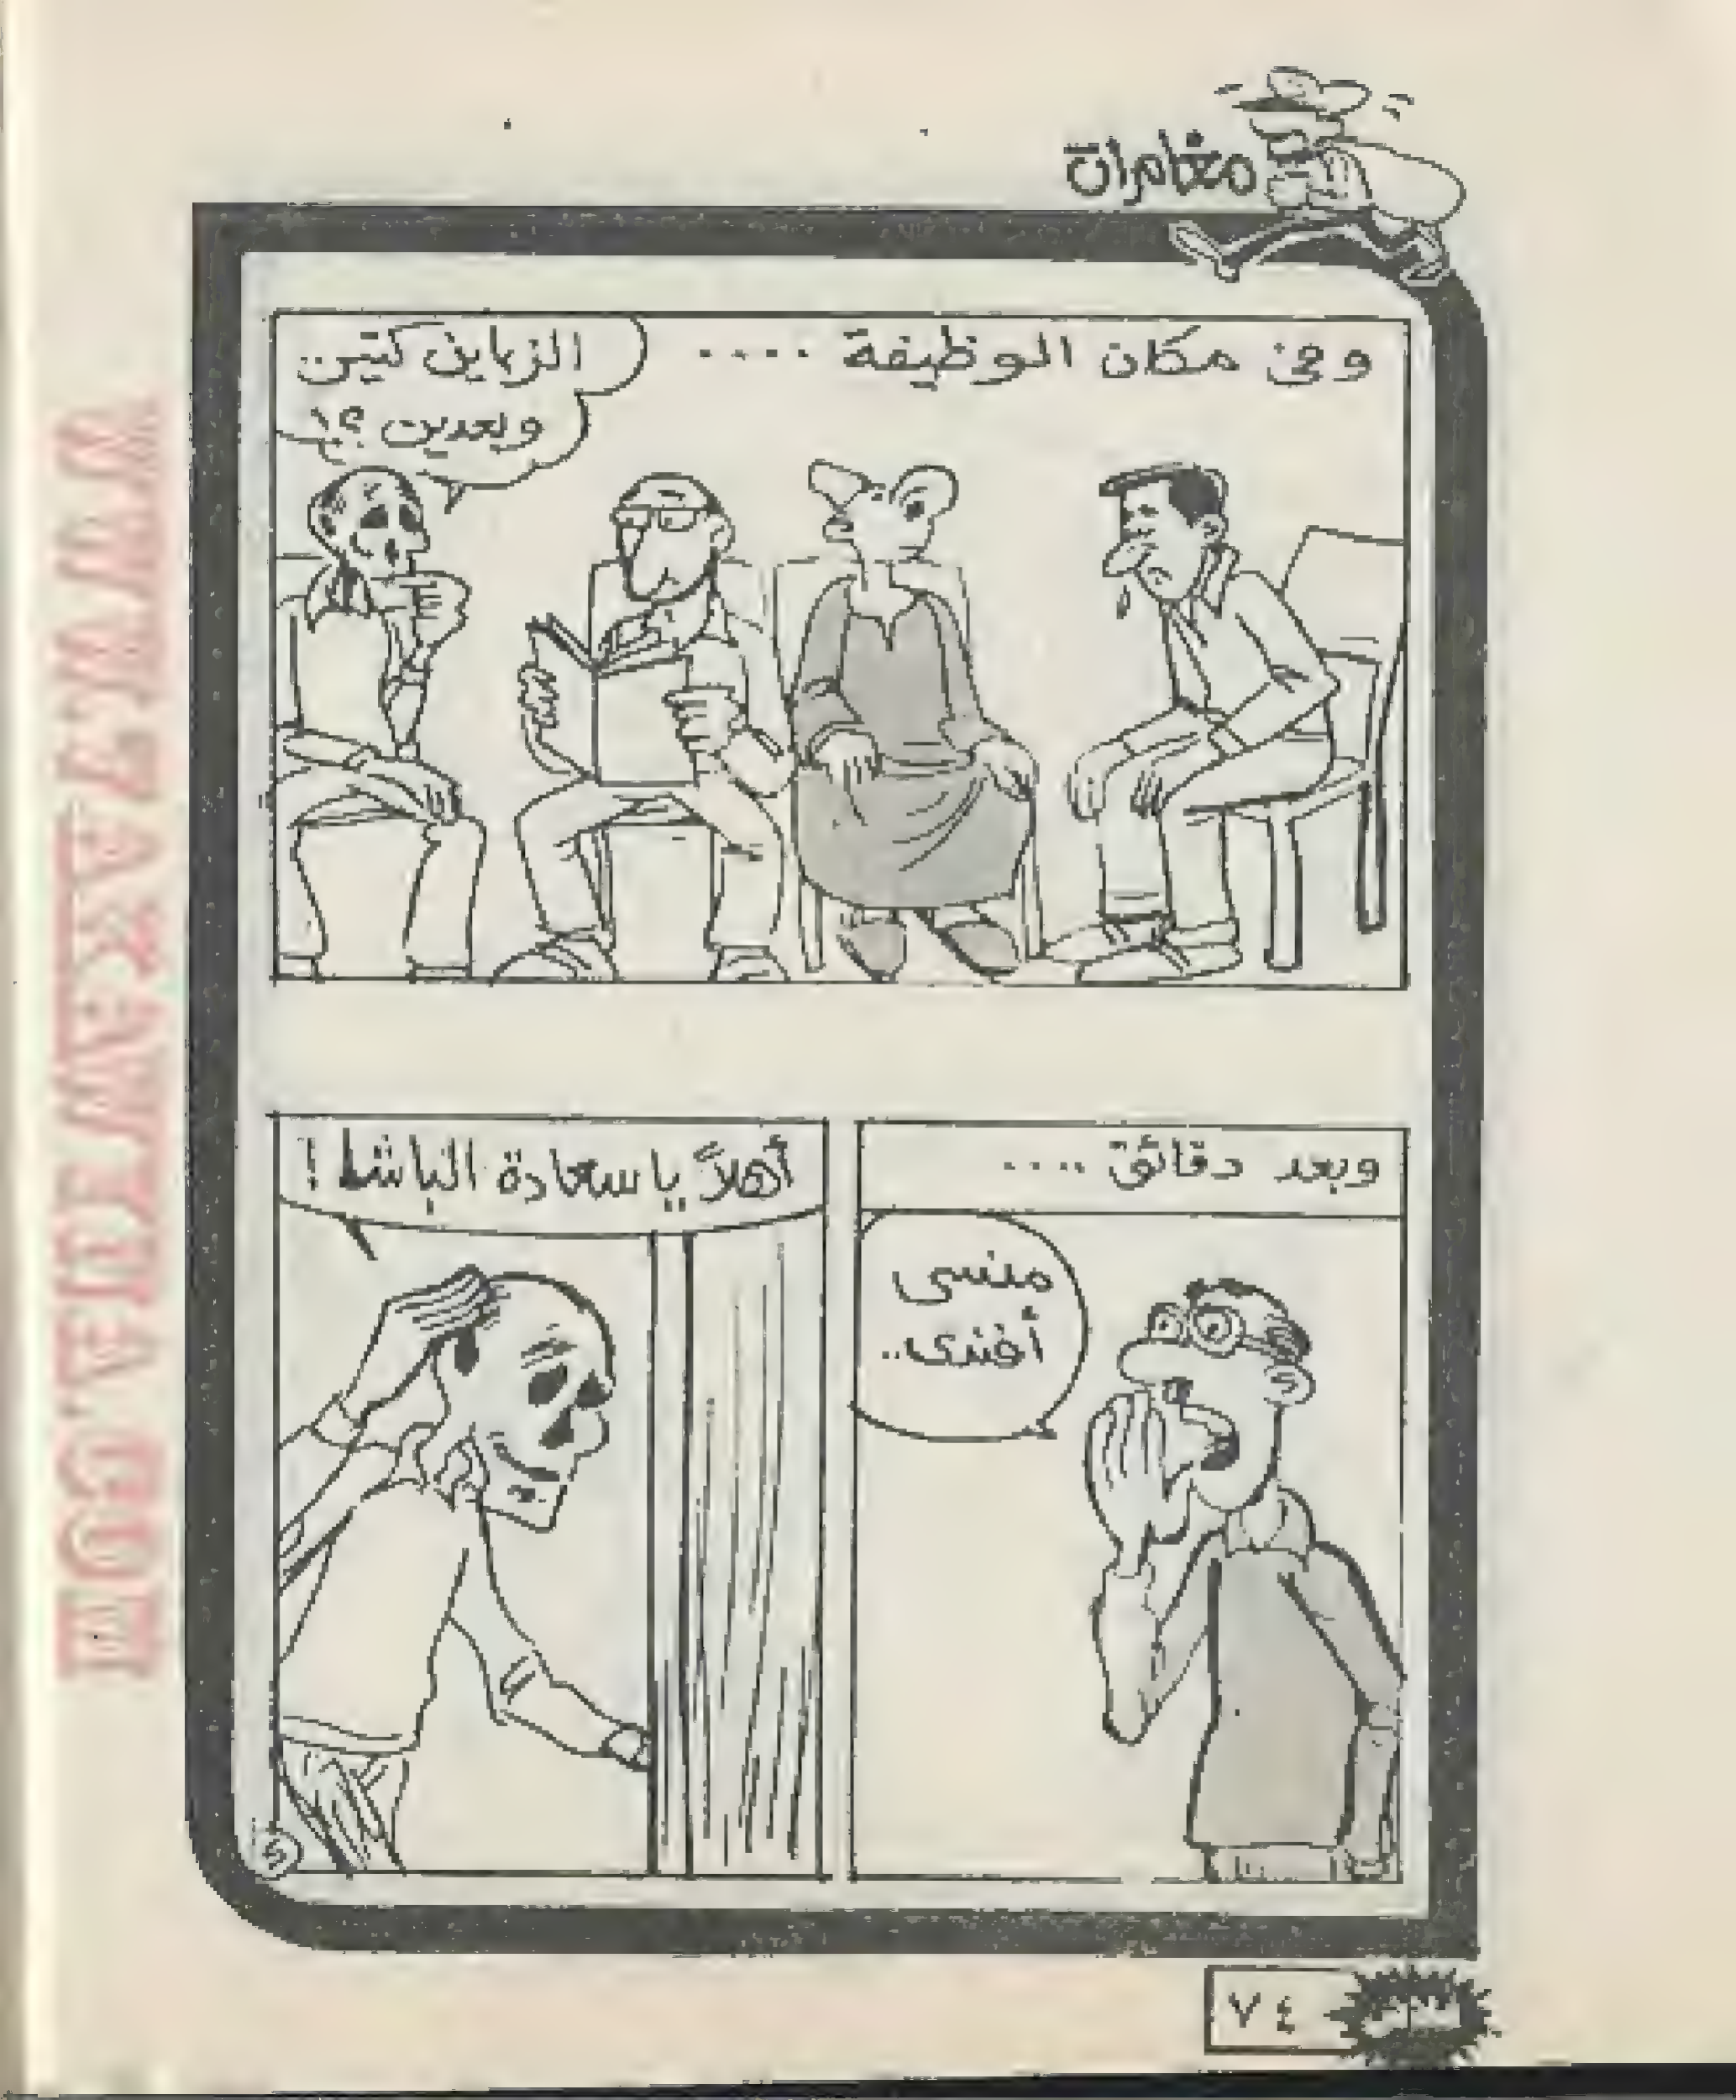 مغامرات
وفى مكان الوظيفة ....
الزباين كتير..
وبعدين ؟!
وبعد دقائق ....
منسى
أفندى..
أهلاً يا سعادة الباشا !
٧٤
WWW.DVD4ARAB.COM